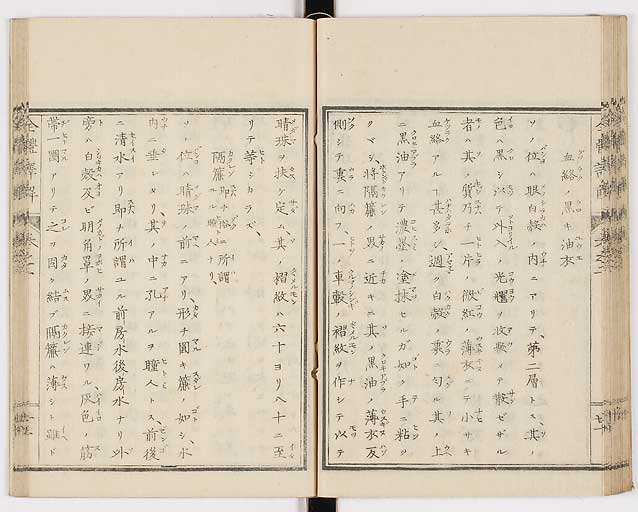 血絡黒キ油衣
ソノ位ハ眼白殻ノ内ニアリテ、第二層トス、其ノ
色ハ黒シ以テ外入ノ光耀ヲ收聚メテ散ゼザル
者ハ其ノ質乃チ一片ノ微紅ノ薄衣ニテ小サキ
血絡アルヿ甚多シ、週ク白殻ノ裏ニ匀ル其ノ上
ニ黒油アリテ濃墨ヲ塗抹ヒルガ如ク手ニ粘ツ
クマシ、将隔簾ノ界ニ近キニ其ノ黒油ノ薄衣反
側シテ裏ニ向フ、一ノ車轂ノ褶紋ヲ作シテ以テ
睛珠ヲ扶ケ定ム、其ノ褶紋ハ六十ヨリ八十ニ至
リテ等シカラズ、
隔簾即チ俗ニ所謂ル瞳人ナリ、
ソノ位ハ睛珠ノ前ニアリ、形チ圓キ簾ノ如シ、水
内ニ垂シメリ、其ノ中ニ孔アルヲ瞳人トス、前後
ニ清水アリ即ナ所謂ユル前房水後房水ナリ外
旁ハ白殻及ビ明角罩ノ界ニ接連ワル灰色ノ筋
帯一圏アリテ之ヲ固ク結ブ隔簾ハ薄シト雖ド